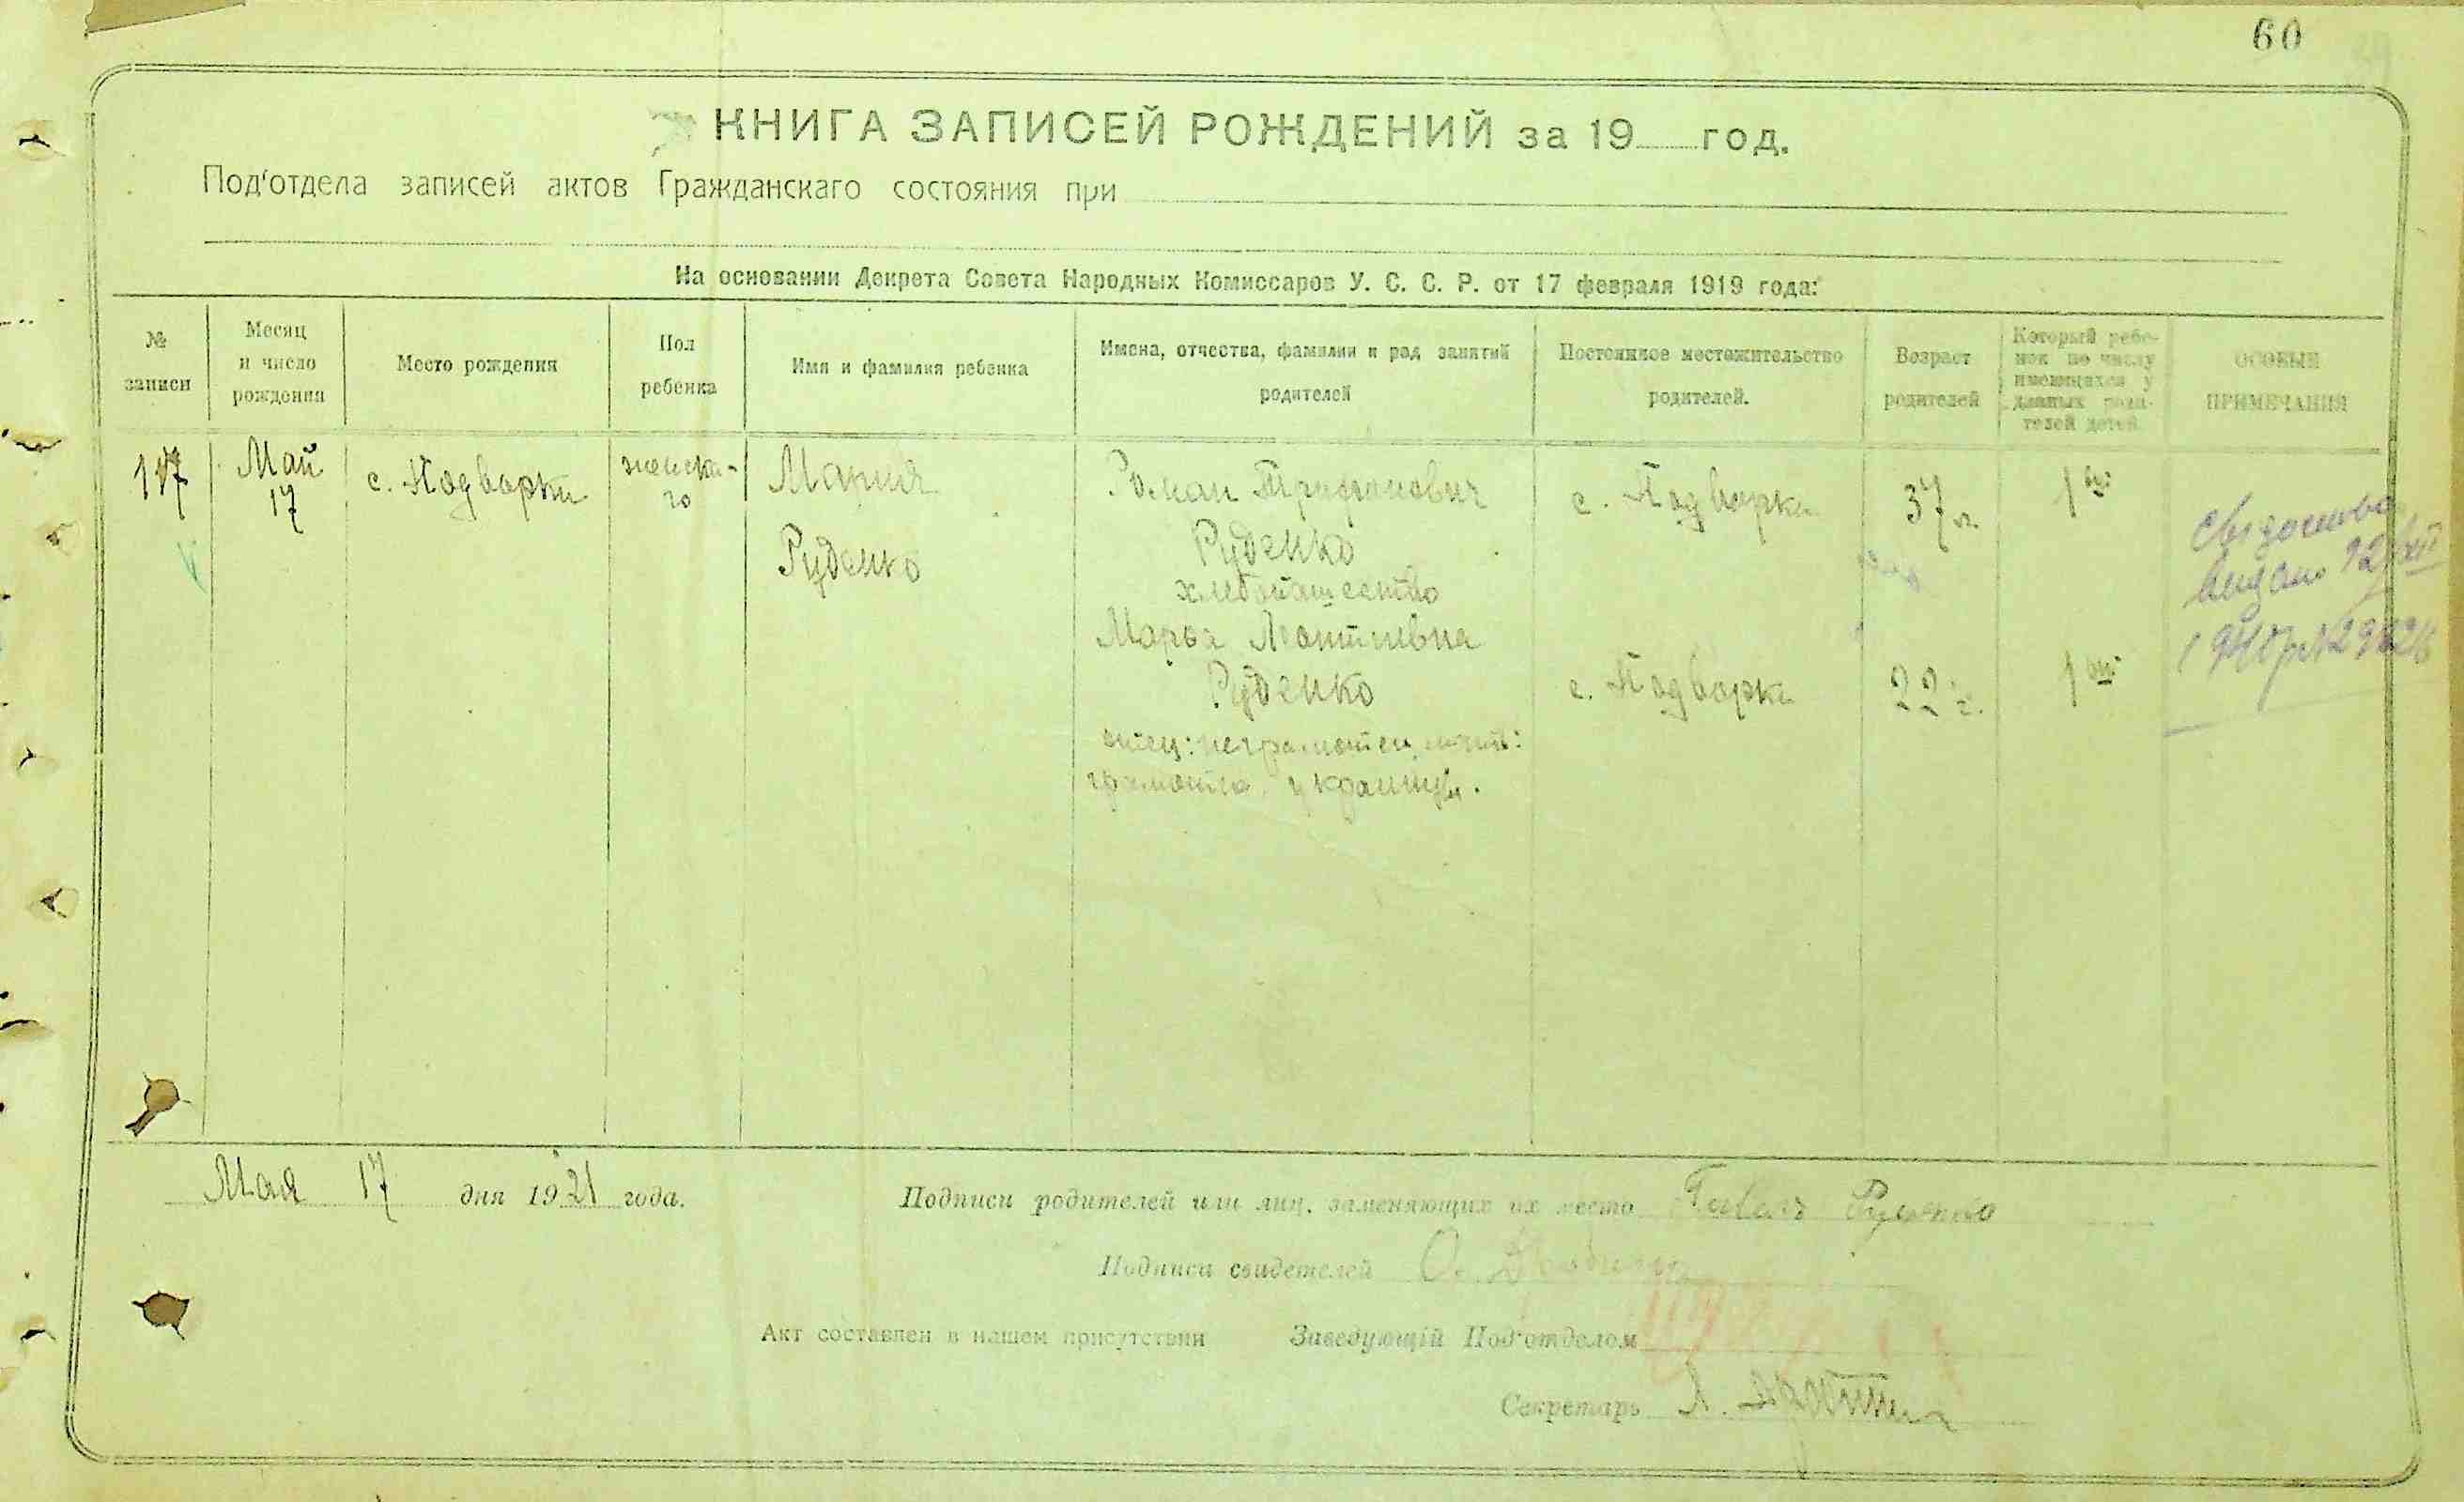 60
КНИГА ЗАПИСЕЙ РОЖДЕНИЙ за 19 год.
Под'отдела записей актов Гражданскаго состояния при
На основании Декрета Совета Народных Комиссаров У. С. С. Р. от 17 февраля 1919 года:
№ записи
Месяц и число рождения
Место рождения
Пол ребенка
Имя и фамилия ребенка
Имена, отчества, фамилии и род занятий родителей
Постоянное местожительство родителей.
Возраст родителей
Который ребенок по числу имеющихся у данных родителей детей
ОСОБЫЯ ПРИМЕЧАНИЯ
117
Май 17
с. Подворки
женска-
го
Мария
Руденко
Роман Трифонович
Руденко
хлебопашество
Марья
Руденко
отец: неграмотен, мать:
грамотна
с. Подворки
37 л.
1
с. Подворки
22 г.
1
видано 12
Мая 17 дня 1921 года.
Подписи родителей или лиц, заменяющих их место Руденко
Подписи свидетелей О.
Акт составлен в нашем присутствии Заведующій Под'отделом
Секретарь